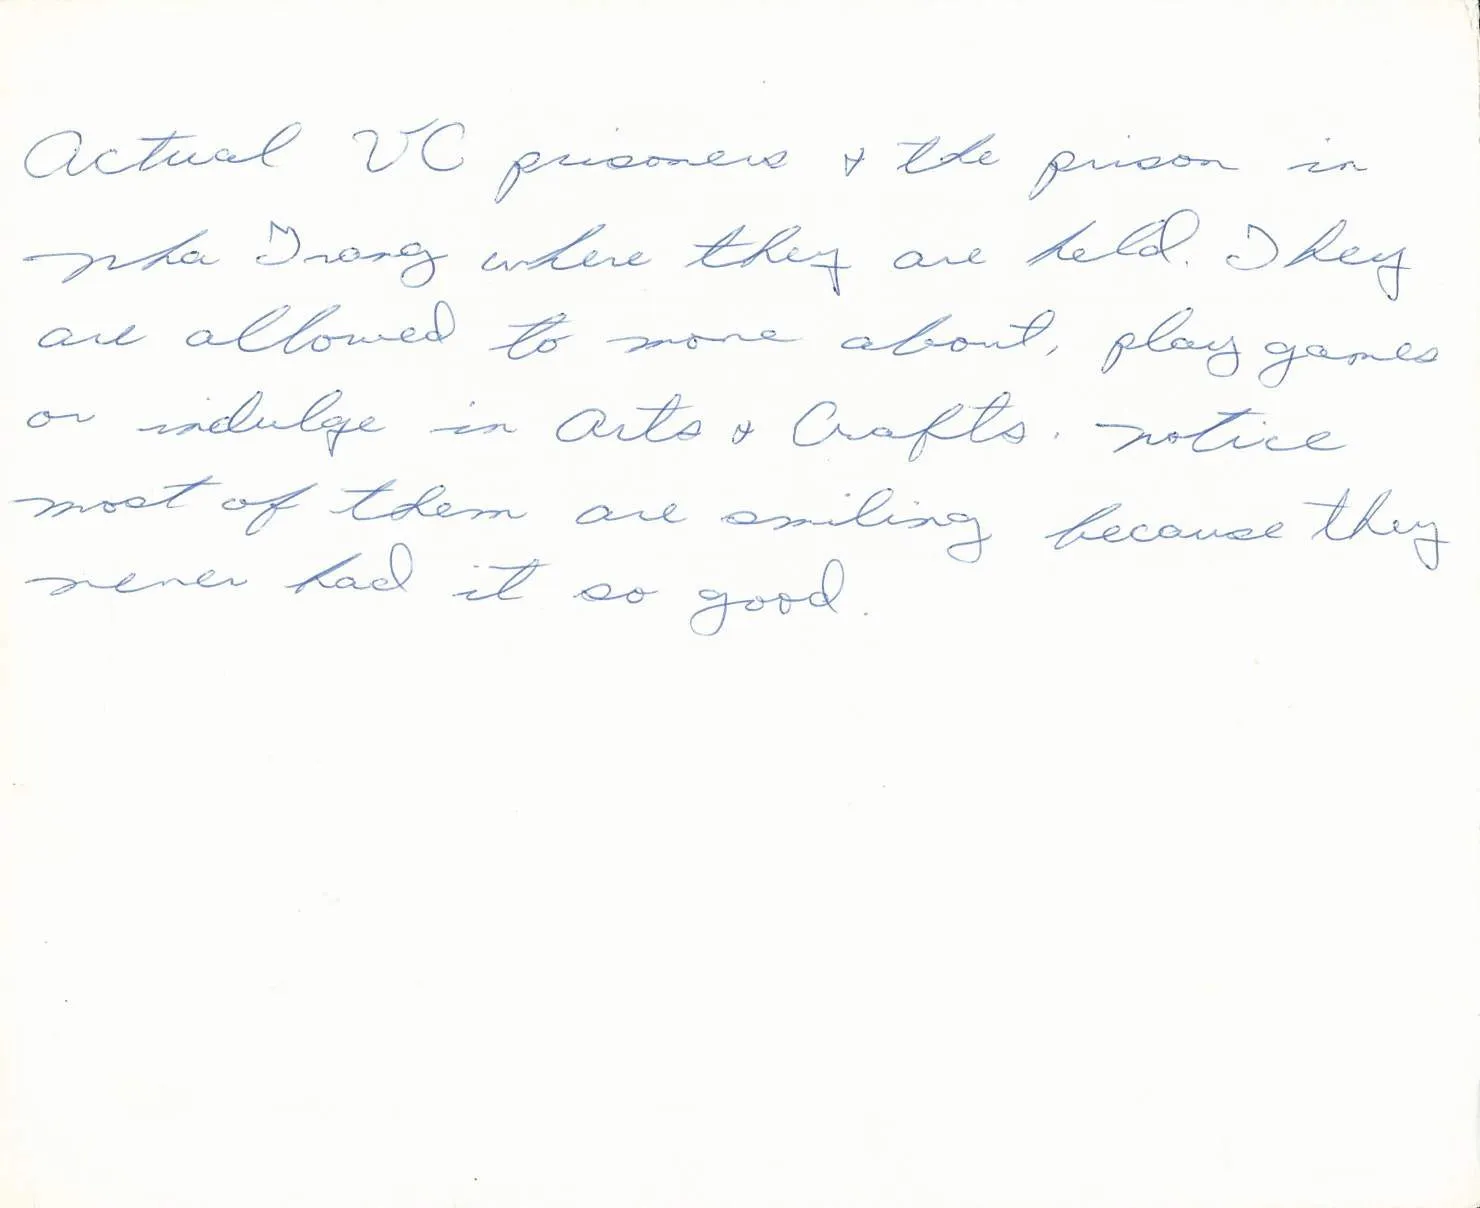 Actual VC prisoners & the prison in
Nha Trang where they are held. They
are allowed to move about, play games
or indulge in Arts & Crafts. Notice
most of them are smiling because they
never had it so good.